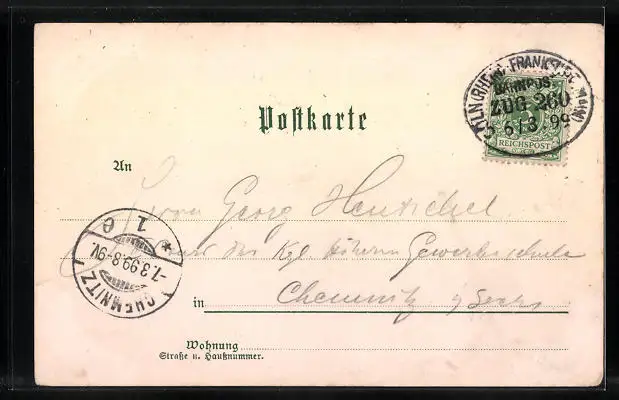 CÖLN (RHEIN) FRANKFURT (MAIN)
BAHNPOST
ZUG 260
6/3 99
REICHSPOST
Postkarte
An
Herrn Georg Hentschel
der Kgl höhern Gewerbeschule
in Chemnitz i/ Sachs
CHEMNITZ 1
-7.3.99.8-9V.
* 1 e
Wohnung
Straße u. Hausnummer.